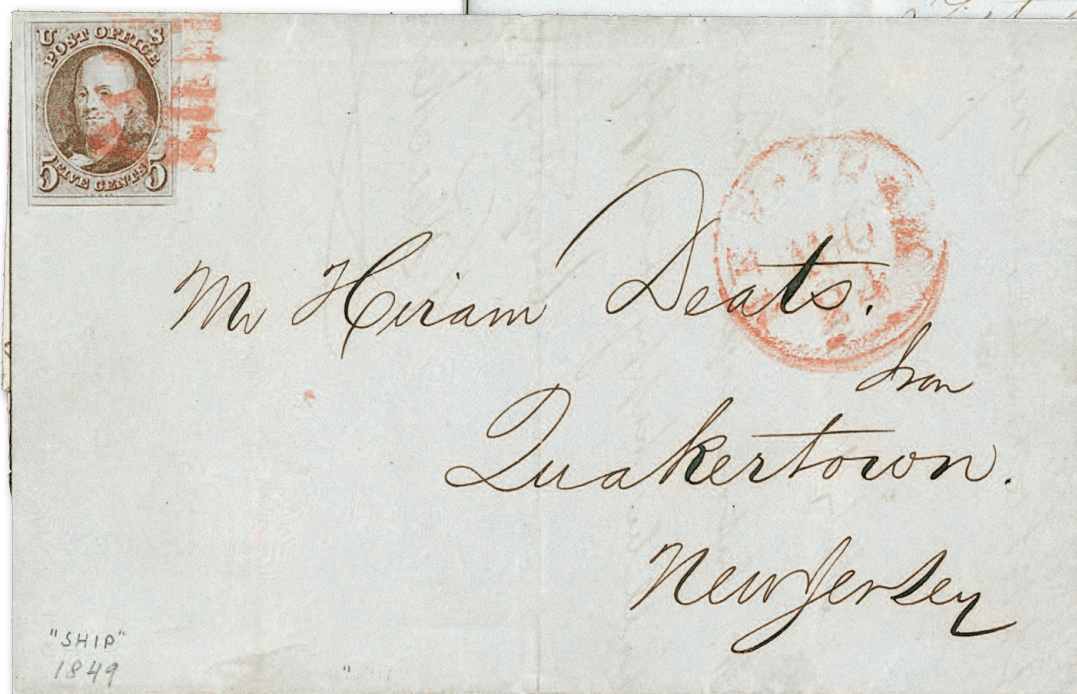 U S
POST OFFICE
5 FIVE CENTS 5
AUG
24
Mr Hiram Deats.
Iron
Quakertown.
New Jersey
"SHIP"
1849